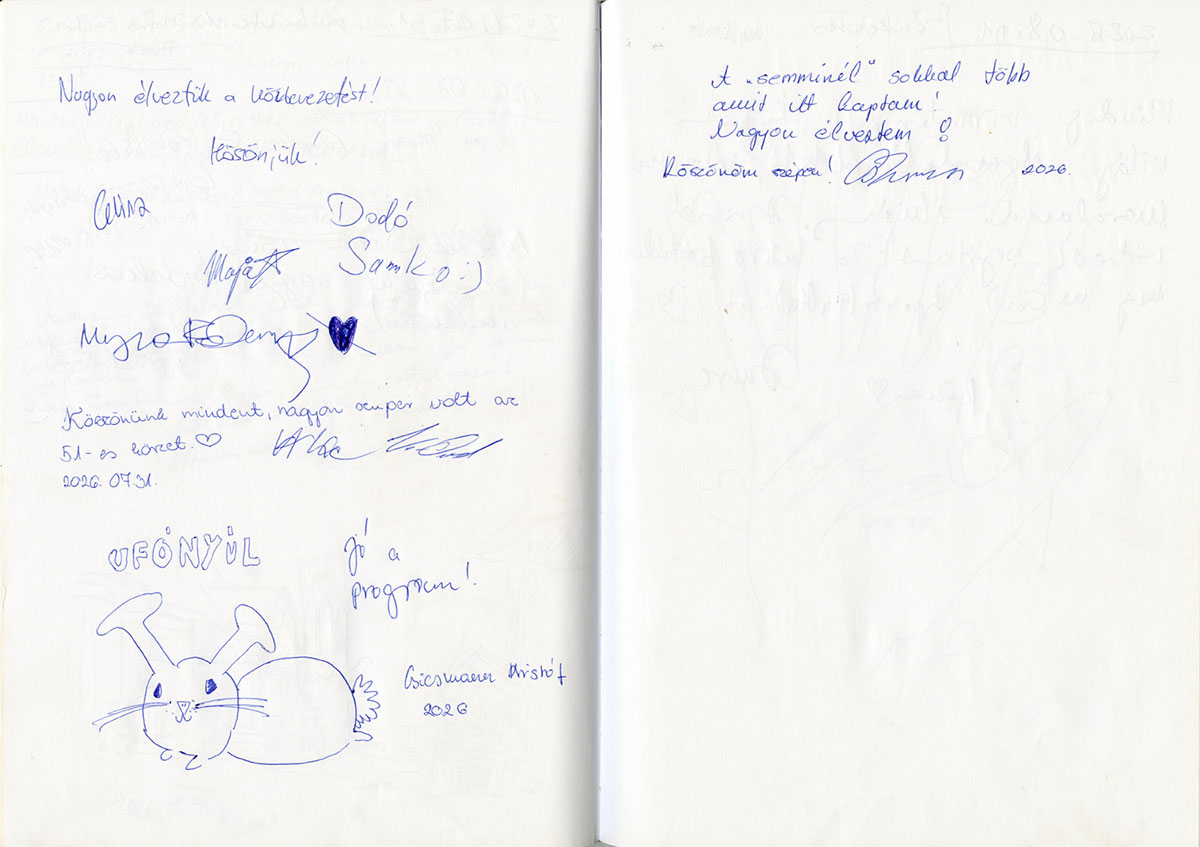 Nagyon élveztük a körbevezetést!
Köszönjük!
Celina
Dodó
Maja
Samko :)
Köszönünk mindent, nagyon szuper volt az
51-es körzet. ♡
2026. 07.31.
UFÓNYÚL
Jó a
program!
Csicsmann Kristóf
2026
A „semminél" sokkal több
amit itt kaptam!
Nagyon élveztem!
Köszönöm szépen!
2026.